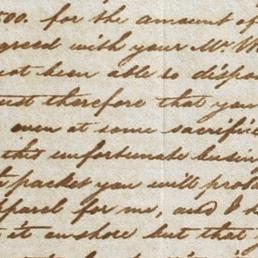 500. for the amount of
greed with your Mr W
not been able to dispo
ust therefore that you
even at some sacrific
this unfortunate busin
packet you will proba
parel for me, and I h
it on shore but that y